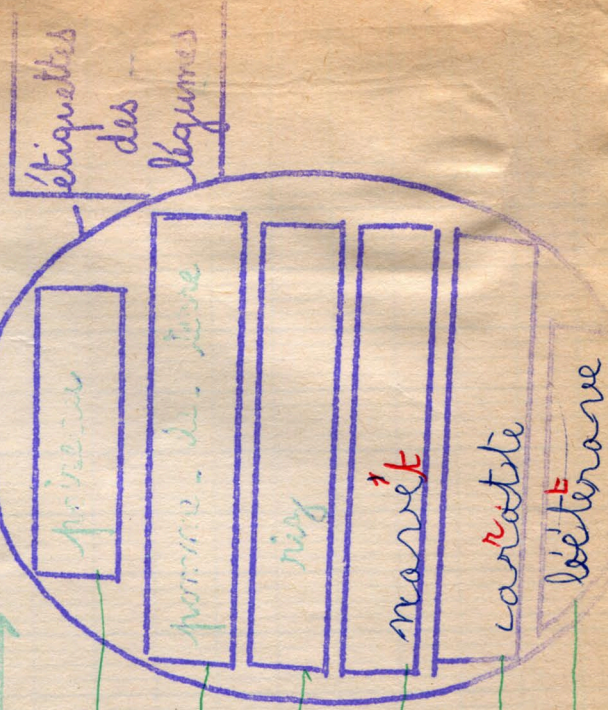 étiquettes
des
légumes
pomme-de-terre
riz
navet
carotte
betterave